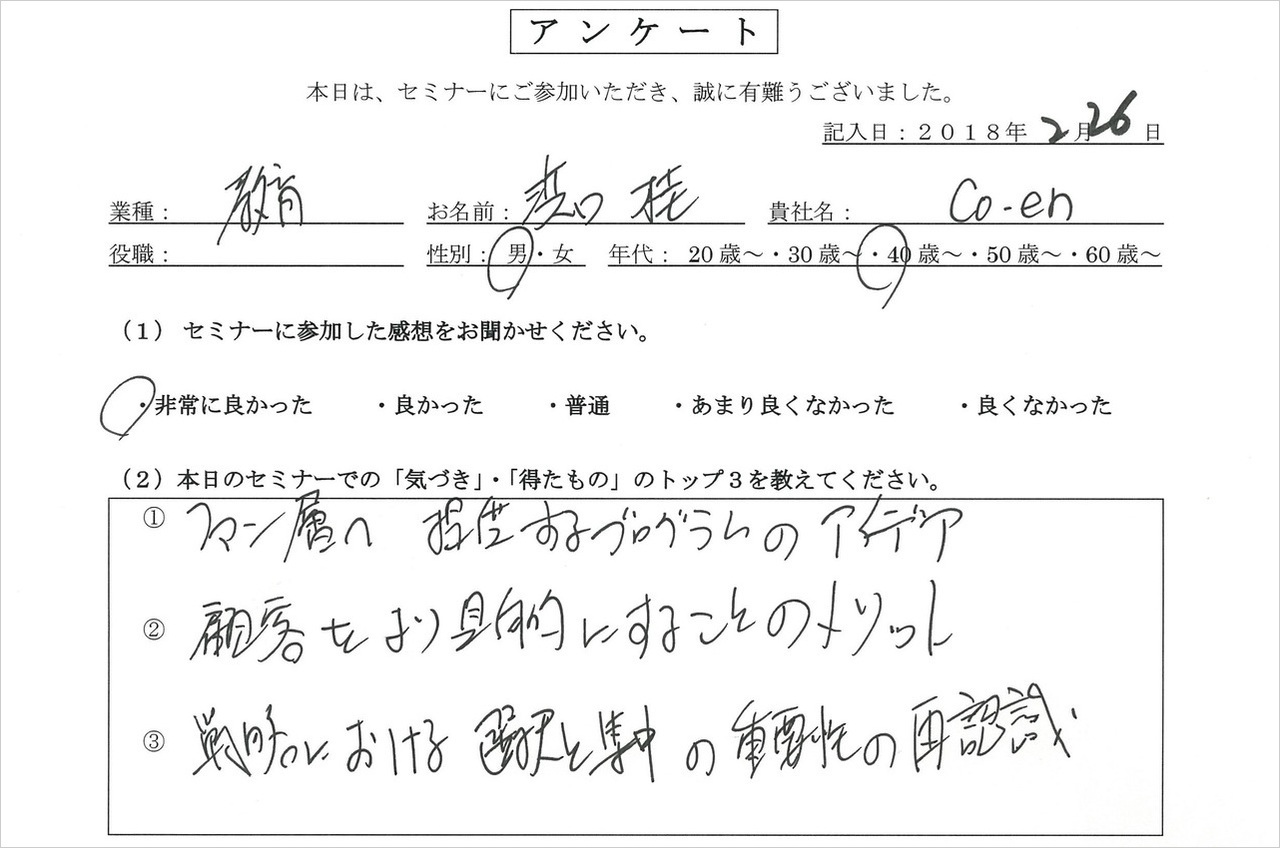 アンケート
本日は、セミナーにご参加いただき、誠に有難うございました。
記入日：２０１８年 2月26日
業種： 教育 お名前： 口 桂 貴社名： Co-en
役職： 性別： 男・女 年代： 20歳～・30歳～・40歳～・50歳～・60歳～
（1） セミナーに参加した感想をお聞かせください。
・非常に良かった ・良かった ・普通 ・あまり良くなかった ・良くなかった
（2）本日のセミナーでの「気づき」・「得たもの」のトップ3を教えてください。
① ファン層へ 提供するプログラムのアイデア
② 顧客をより具体的にすることのメリット
③ 戦略における選択と集中の重要性の再認識